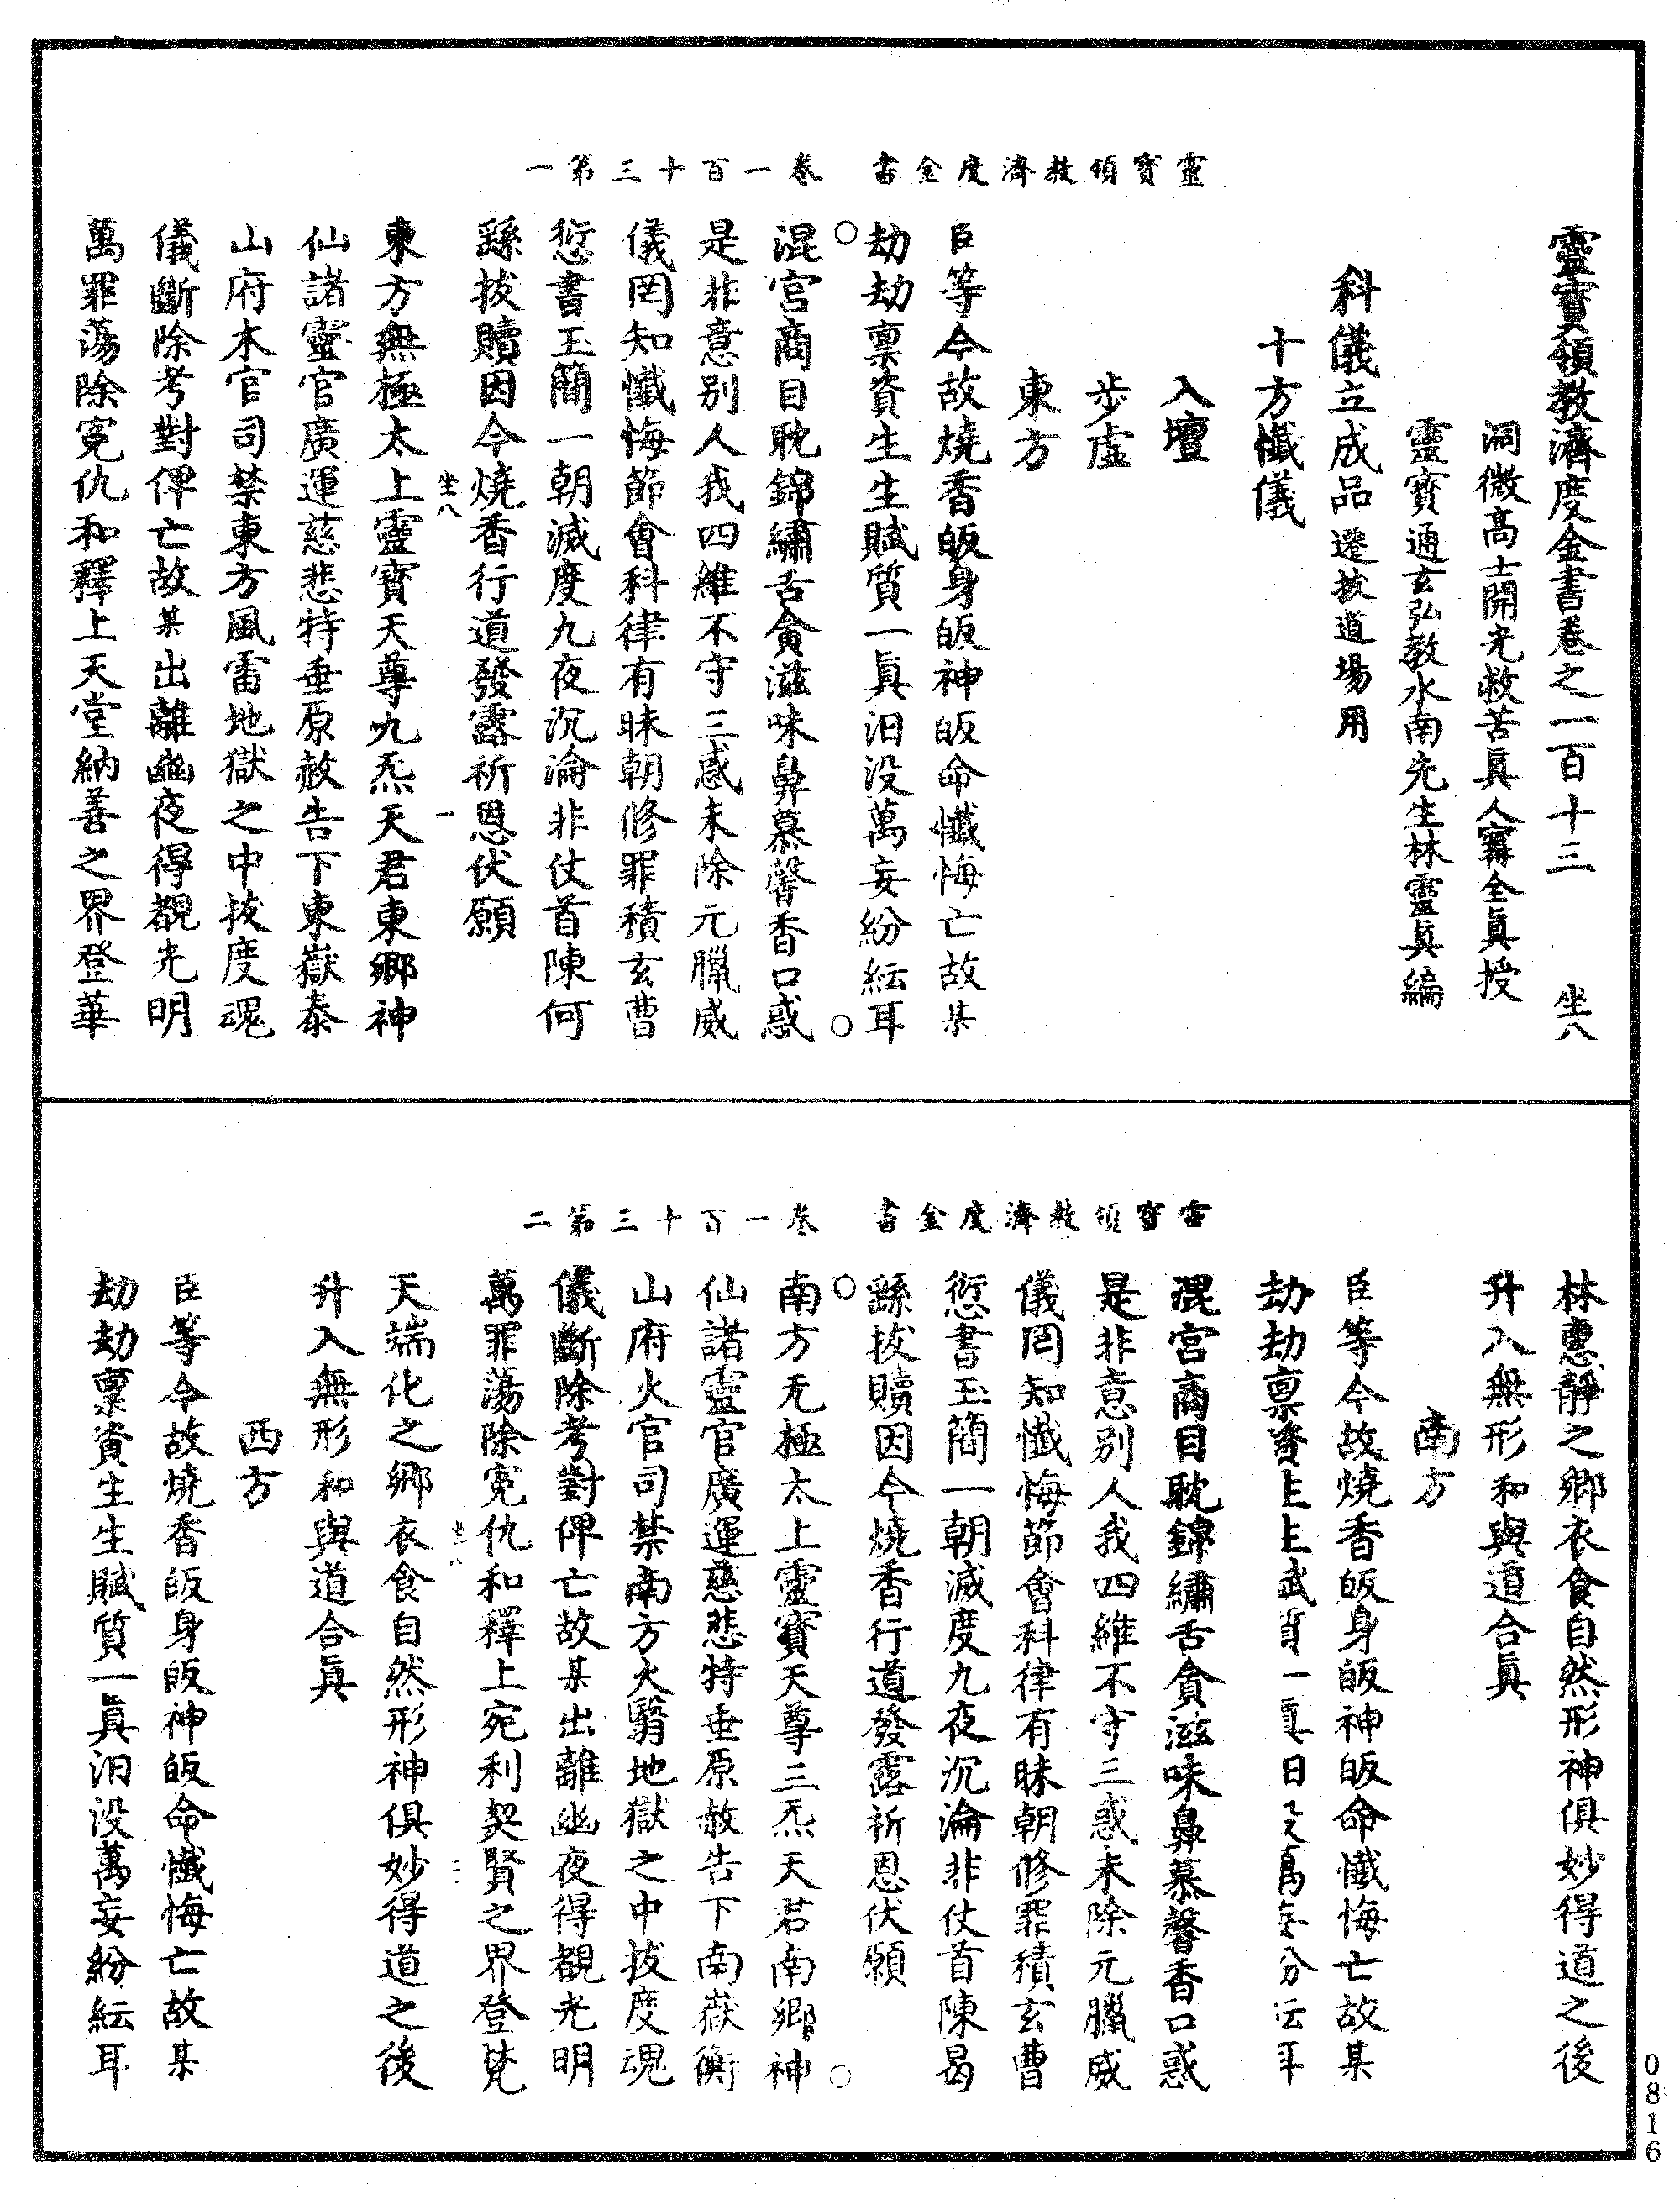 靈寶領教濟度金書　卷一百十三第一
靈寶領教濟度金書卷之一百十三　坐八
洞微高士開光救苦眞人甯全眞授
靈寶通玄弘教水南先生林靈眞編
科儀立成品 遷拔道場用
十方懺儀
入壇
步虛
東方
臣等今故燒香皈身皈神皈命懺悔亡故某
劫劫稟資生生賦質一眞汩没萬妄紛紜耳
混宮商目耽錦繡舌貪滋味鼻慕馨香口惑
是非意别人我四維不守三惑未除元臘威
儀罔知懺悔節會科律有昧朝修罪積玄曹
愆書玉簡一朝滅度九夜沉淪非仗首陳何
繇拔贖因今燒香行道發露祈恩伏願
坐八　一
東方無極太上靈寶天尊九炁天君東鄉神
仙諸靈官廣運慈悲特垂原赦告下東嶽泰
山府木官司禁東方風雷地獄之中拔度魂
儀斷除考對俾亡故某出離幽夜得覩光明
萬罪蕩除寃仇和釋上天堂納善之界登華
靈寶領教濟度金書　卷一百十三第二
林惠靜之鄉衣食自然形神俱妙得道之後
升入無形和與道合眞
南方
臣等今故燒香皈身皈神皈命懺悔亡故某
劫劫稟資
混宮商目耽錦繡舌貪滋味鼻慕馨香口惑
是非意别人我四維不守三惑未除元臘威
儀罔知懺悔節會科律有昧朝修罪積玄曹
愆書玉簡一朝滅度九夜沉淪非仗首陳曷
繇拔贖因今燒香行道發露祈恩伏願
南方无極太上靈寶天尊三炁天君南鄉神
仙諸靈官廣運慈悲特垂原赦告下南嶽衡
山府火官司禁南方火翳地獄之中拔度魂
儀斷除考對俾亡故某出離幽夜得覩光明
萬罪蕩除寃仇和釋上宛利契賢之界登梵
坐八　二
天端化之鄉衣食自然形神俱妙得道之後
升入無形和與道合眞
西方
臣等今故燒香皈身皈神皈命懺悔亡故某
劫劫稟資生生賦質一眞汩没萬妄紛紜耳
0816